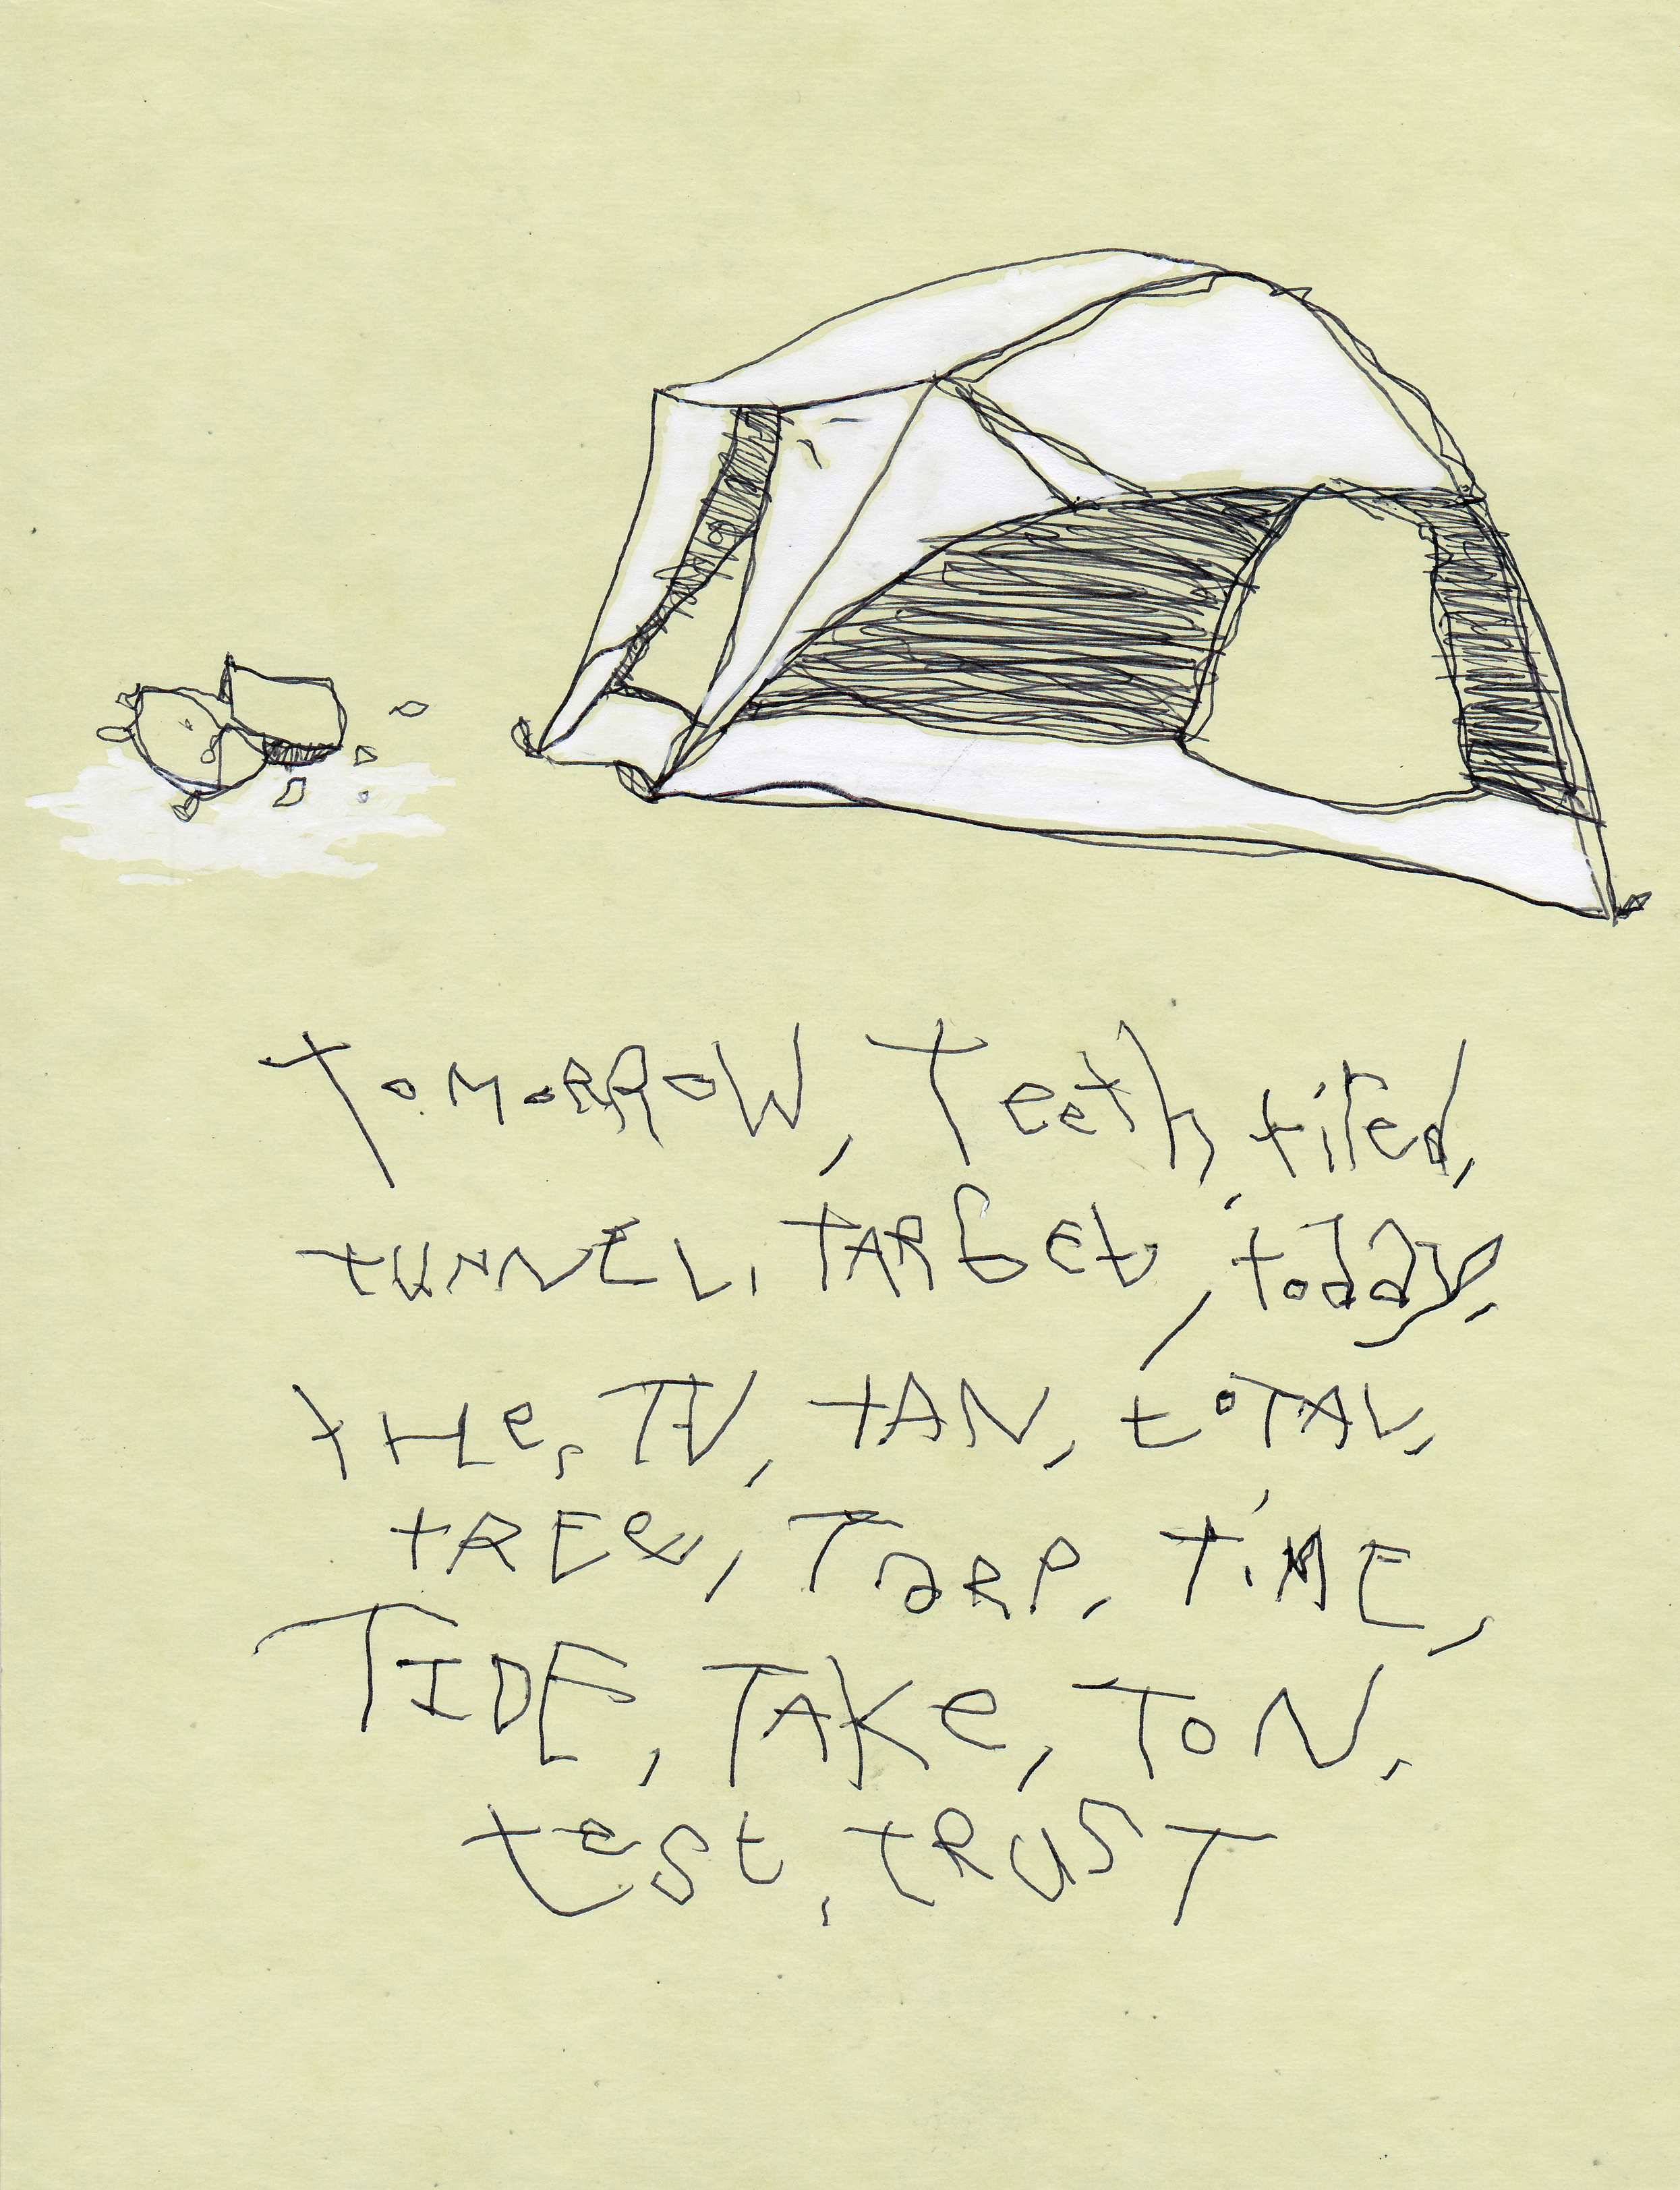 TOMORROW, Teeth, tired,
tUNNEL, TARGET, today,
tHe, TV, tAN, toTAL,
tREe, TaRP, TiME,
TIDE, TAKe, ToN,
test, tRUST